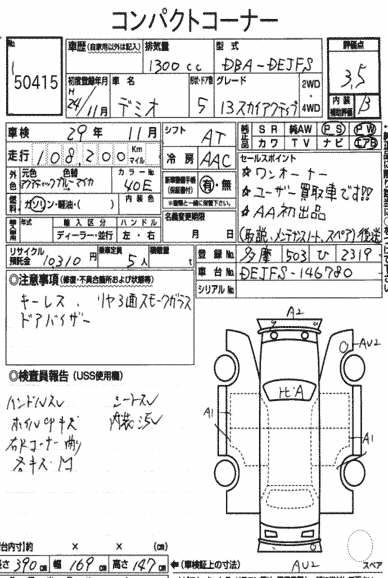 コンパクトコーナー
No. 50415
車歴 (自家用以外は記入) 排気量 1300cc 型式 DBA-DEJFS 評価点 3.5
初度登録年月 H 24/11月 車名 デミオ ドア数 5 グレード 13スカイアクティブ 2WD 4WD 内装 補助評価 B
車検 29年 11月 シフト AT 純正部品 SR 純AW PS PW
走行 108,200 Km マイル 冷房 AAC カワ TV ナビ エアB
外色 元色 色替 カラーNo. 40E 有・無
セールスポイント
☆ワンオーナー
☆ユーザー買取車です!!
☆AA初出品
燃料 ガソリン・軽油・( ) 内装色
年式 輸入区分 ハンドル
ディーラー・並行 左・右
名義変更期限 月 日
(取説、メンテナンスノート、スペアキー)後送
リサイクル預託金 10310円 乗車定員 5人 積載量 t
登録No. 多摩 503 ひ 2319
車台No. DEJFS-146780
シリアルNo.
◎注意事項 (修復・不具合箇所および状態等)
キーレス、リヤ3面スモークガラス
ドアバイザー
◎検査員報告 (USS使用欄)
ハンドルスレ シートスレ
ホイルcapキズ 内装汚レ
右Rコーナー
各キズ・凹
A2
AU2
A1
A1
AU2
スペア
荷台内寸 】約 × × (cm)
長さ 390cm 幅 169cm 高さ 147cm ←(車検証上の寸法)